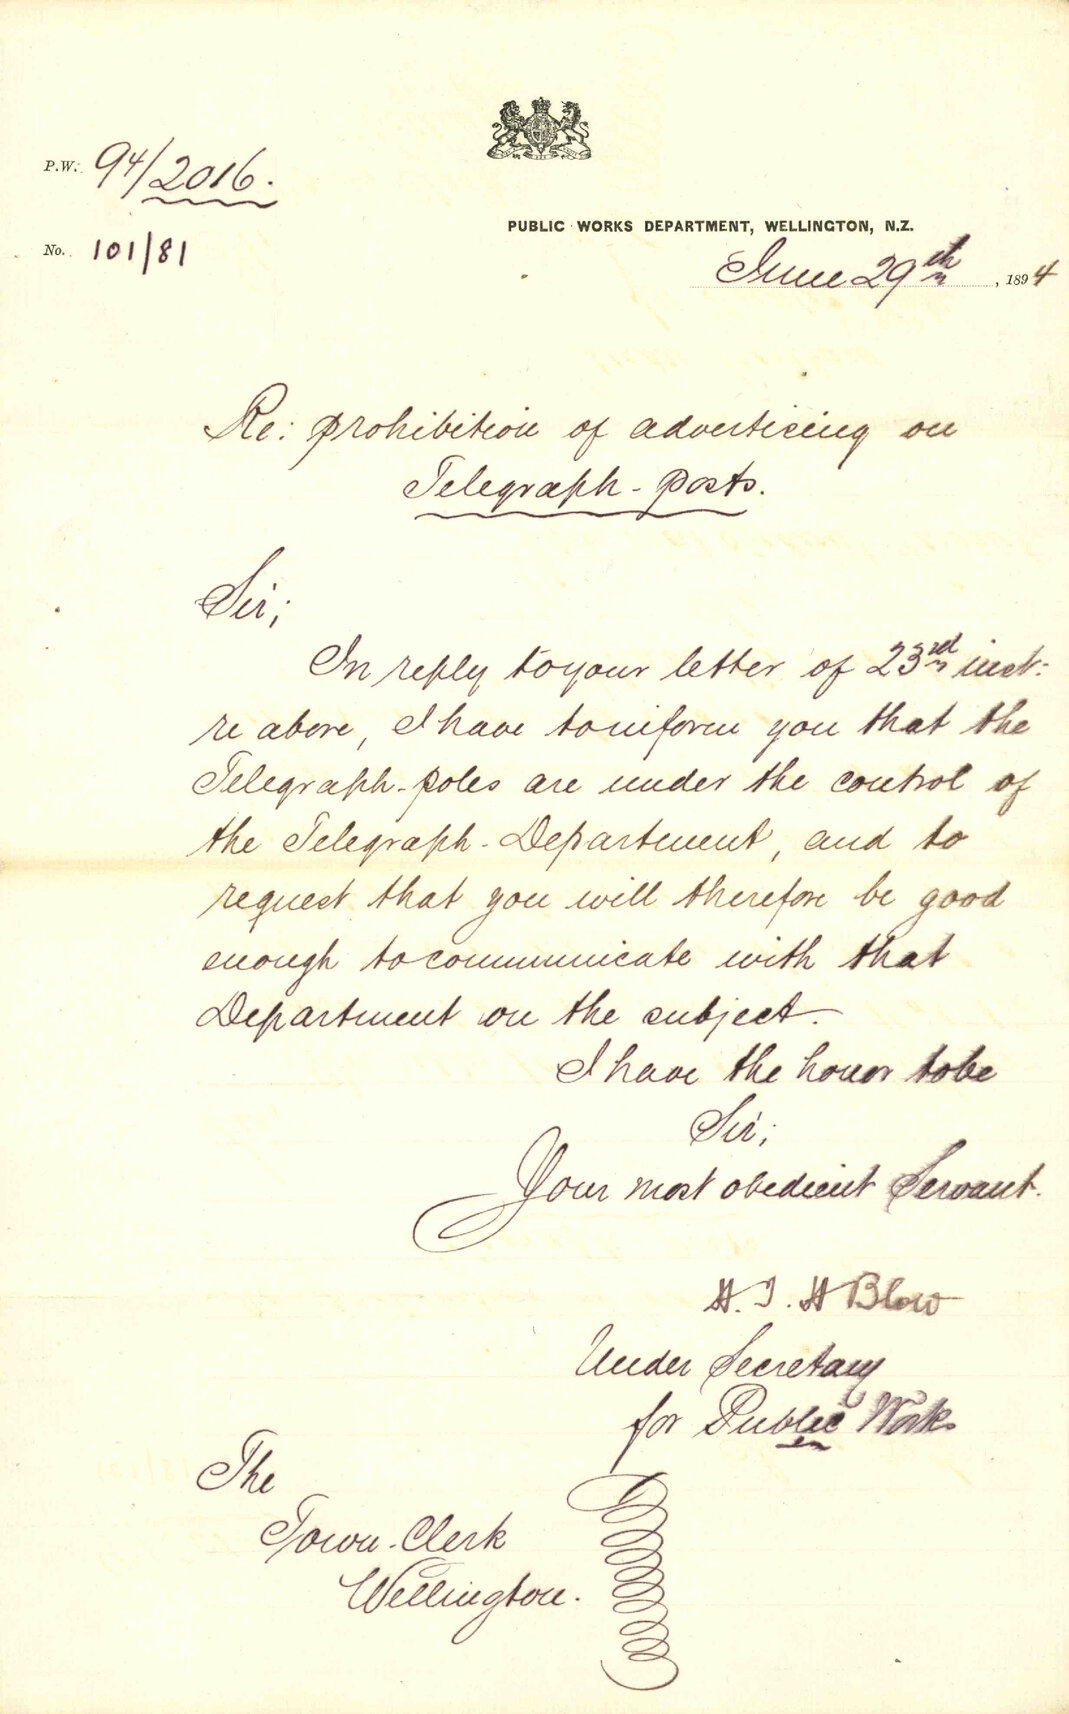 P.W. 94/2016.
No. 101/81
PUBLIC WORKS DEPARTMENT, WELLINGTON, N.Z.
June 29th, 1894
Re: prohibition of advertising on
Telegraph-posts.
Sir;
In reply to your letter of 23rd inst:
re above, I have to inform you that the
Telegraph-poles are under the control of
the Telegraph-Department, and to
request that you will therefore be good
enough to communicate with that
Department on the subject.
I have the honor to be
Sir;
Your most obedient Servant.
H. J. H Blow
Under Secretary
for Public Works
The
Town-Clerk
Wellington.